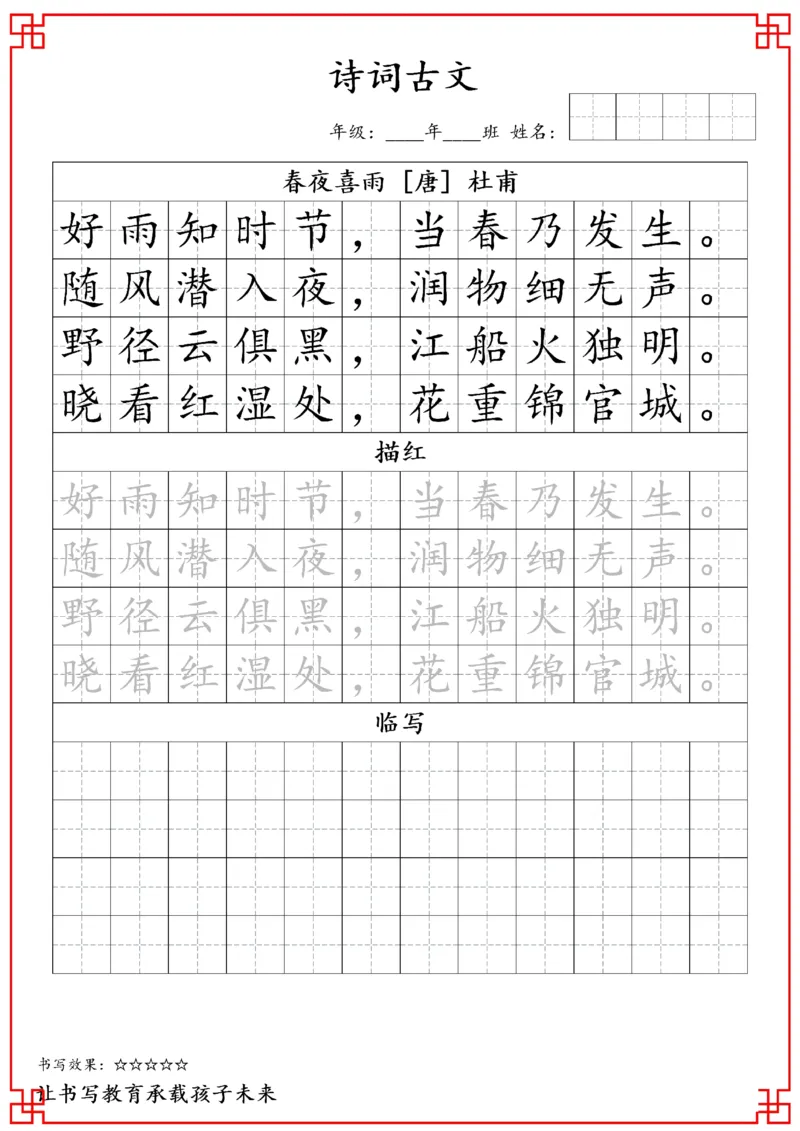 诗词古文
年级：____年____班 姓名：
春夜喜雨［唐］杜甫
好雨知时节，当春乃发生。
随风潜入夜，润物细无声。
野径云俱黑，江船火独明。
晓看红湿处，花重锦官城。
描红
好雨知时节，当春乃发生。
随风潜入夜，润物细无声。
野径云俱黑，江船火独明。
晓看红湿处，花重锦官城。
临写
书写效果：☆☆☆☆☆
让书写教育承载孩子未来